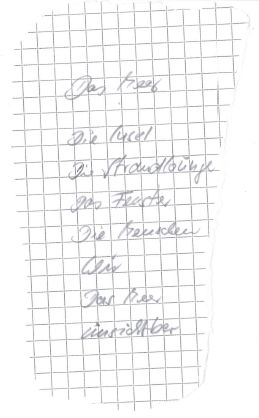 Das Meer
Die Insel
Die Strandläufer
Das Fenster
Die Menschen
Wir
Das Meer
unsichtbar